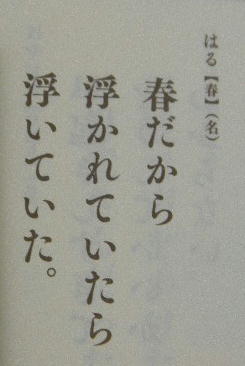 はる【春】（名）
春だから
浮かれていたら
浮いていた。